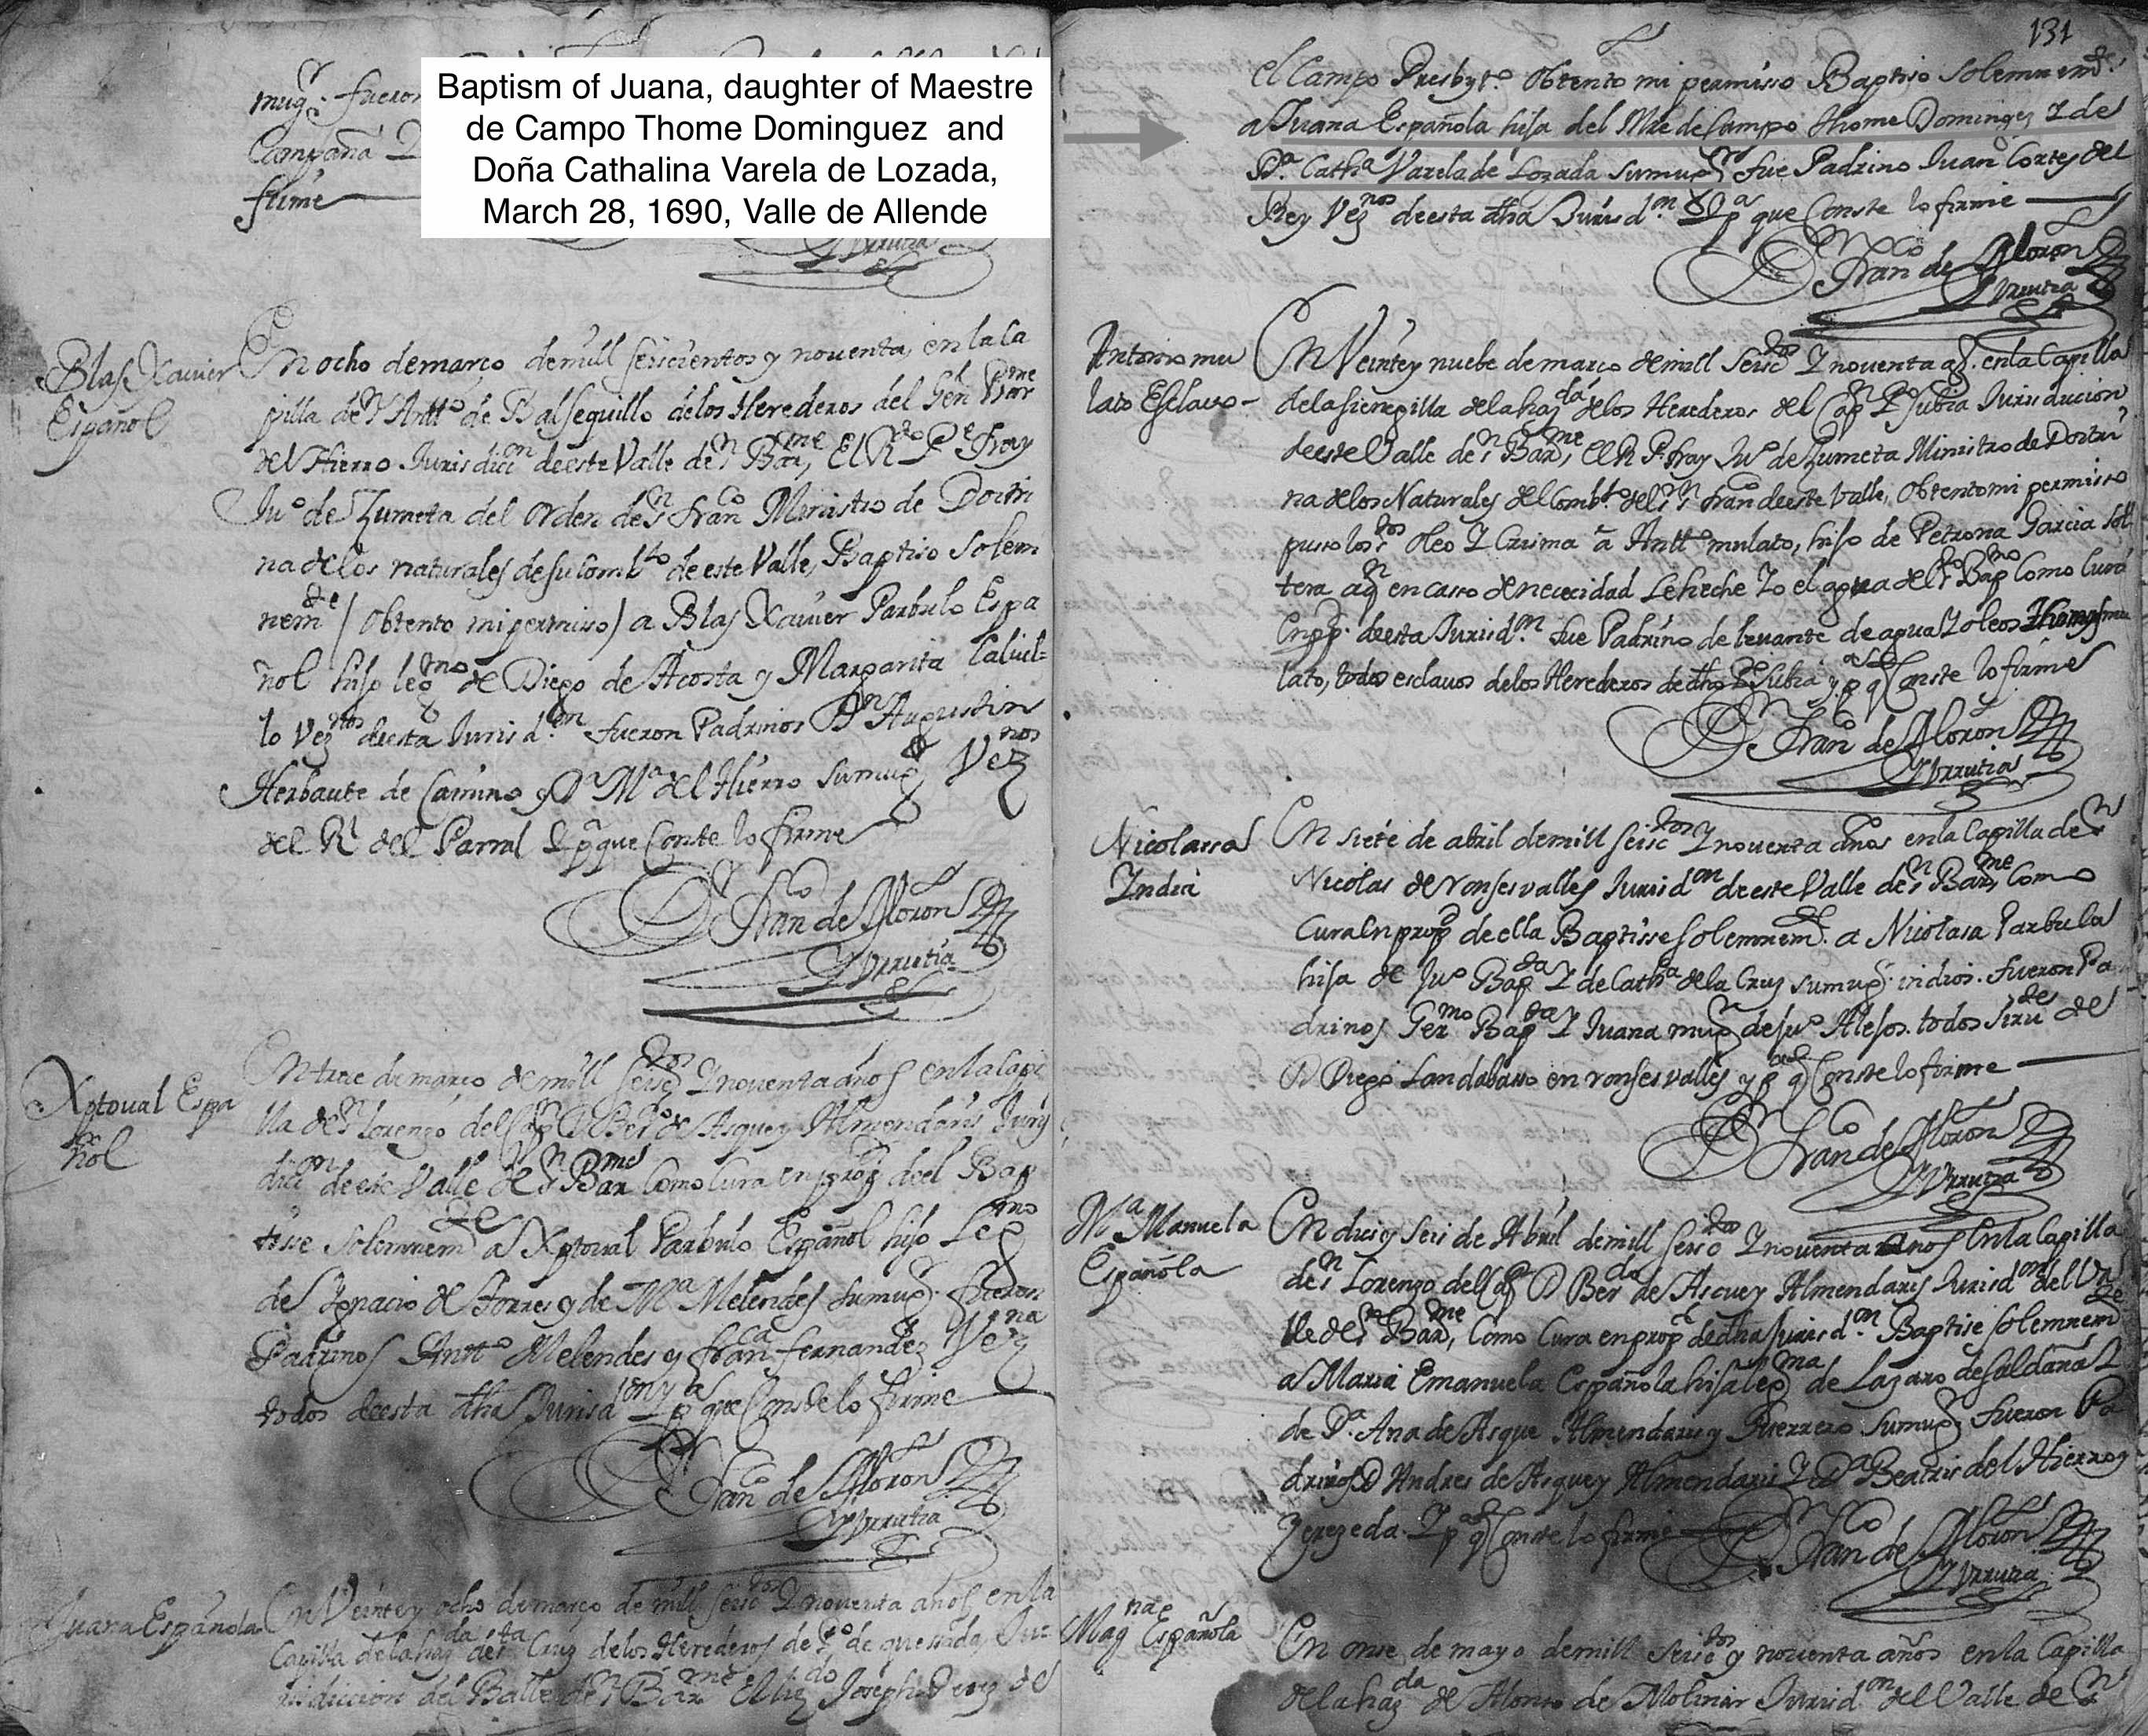 mugr. fueron
Campaña
firme
Baptism of Juana, daughter of Maestre
de Campo Thome Dominguez and
Doña Cathalina Varela de Lozada,
March 28, 1690, Valle de Allende
Yrrutia
Blas Xauier
Español
En ocho de março de mill seiscientos y noventa, en la Ca
pilla de Sn Antto de Balsequillo de los Herederos del Gen Barme
del Hierro Jurisdicn de este Valle de Sn Barme, El Rdo Pe fray
Juo de Zumeta del Orden de Sn franco Ministro de Doctri
na de los naturales de su Combto de este Valle, Baptiso Solem
nemde / obtento mi permiso / a Blas Xauier Parbulo Espa
ñol hijo legmo de Diego de Acosta y Margarita
lo Veznos de esta Jurisdon fueron Padrinos Dn Augustin
Herbaute de Camino y Da Ma del Hierro su mugr Veznos
del Rl del Parral Y pa que Conste lo firme
Dr Franco de Moron
Yrrutia
Xptoual Espa
ñol
En trece de março de mill seiscdos Y noventa años en la Capi
lla de Sn Lorenzo del Capn D Berdo de Asque y Almendaris Juris
dicn de este Valle de Sn Barme Como Cura en propd de el Bap
tisse Solemnemde a Xptoual Parbulo Español hijo Legmo
de Ygnacio de Torres y de Ma Melendes su mugr. fueron
Padrinos Antto Melendes y franca fernandez Vezna
todos de esta dha Jurisdon y pa que Conste lo firme
Dr Franco de Moron
Yrrutia
Juana Española
En Veinte y ocho de março de mill seiscdos Y noventa años en la
Capilla de la hazda de Sta Cruz de los Herederos de Po de quesada, Ju
risdiccion del Balle de Sn Barme El Lizdo Joseph Perez de
131
el Campo Presbyto. Obtento mi permisso Baptiso Solemnemde.
a Juana Española hija del Mre de Campo thome Dominguez Y de
Da. Catha Varela de Lozada su mugr fue Padrino Juan Cortes del
Rey Veznos de esta dha Jurisdn. Y pa que Conste lo firme
Dr Franco de Moron
Yrrutia
Antonio mu
lato Esclauo
En Veinte y nuebe de março de mill Seiscdos Y noventa as. en la Capilla
de la sieneguilla de la hazda de los Herederos del Capn Po Subia Jurisdiccion
de este Valle de Sn Barme, el R P. fray Juo de Zumeta Ministro de Doctri
na de los Naturales del Combto del Sn franco de este Valle, Obtento mi permisso
puso los Stos Oleo Y Crisma a Antto mulato, hijo de Petrona Garcia Sol
tera aqn en casso de necesidad Le heche Yo el agua del Sto Bapmo Como Cura
En propd. de esta Jurisdn. fue Padrino de lebante de agua Y oleos Thomas mu
lato, todos esclauos de los Herederos de dho Po Subia y pa q Conste lo firme
Dr Franco de Moron
Yrrutia
Nicolassa
Yndia
En siete de abril de mill seiscdos Y noventa años en la Capilla de Sn
Nicolas de ronsesvalles Jurisdon de este Valle de Sn Barme Como
Cura En propd de ella Baptisse solemnemde. a Nicolasa Parbula
hija de Juo Bapda Y de Catha de la Cruz su mugr. indios. fueron Pa
drinos Germo Bapda Y Juana mugr de Juo todos siruds del
D Diego Landabasso en ronsesvalles y pa q Conste lo firme
Dr Franco de Moron
Yrrutia
Ma Manuela
Española
En dies y seis de Abril de mill Seiscdos Y noventa años En la Capilla
de Sn Lorenzo del Capn D Berdo de Ascue y Almendaris Jurisdon del Va
lle de Sn Barme, Como Cura en propd de dha Jurisdn. Baptise solemnemde
a Maria Emanuela Española hija legma de Lazaro de saldaña Y
de Da. Ana de Asque Almendaris y Guerrero su mugr, fueron Pa
drinos D Andres de Asque y Almendaris Y Da Beatris del Hierro y
Zerezeda. Y pa q Conste lo firme
Dr Franco de Moron
Yrrutia
Magna Española
En onse de mayo de mill seiscdos y noventa años en la Capilla
de la hazda de Alonso de Molinar Jurisdn del Valle de Sn